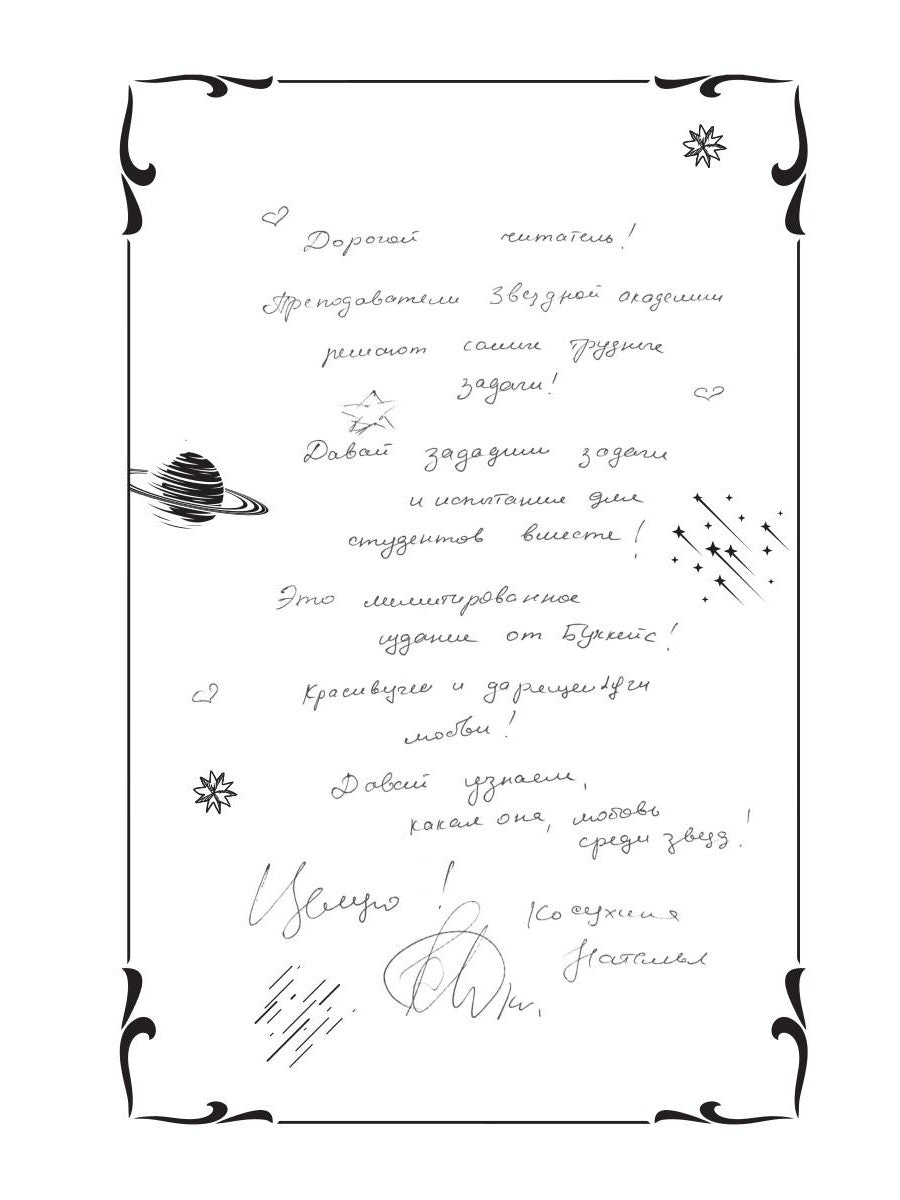 Дорогой читатель!
Преподаватели Звездной академии
решают самые трудные
задачи!
Давай зададим задачи
и испытания для
студентов вместе!
Это лимитированное
издание от Букейс!
и
любви!
Давай узнаем,
какая она, любовь
среди звезд!
Целую!
Косухина
Наталья